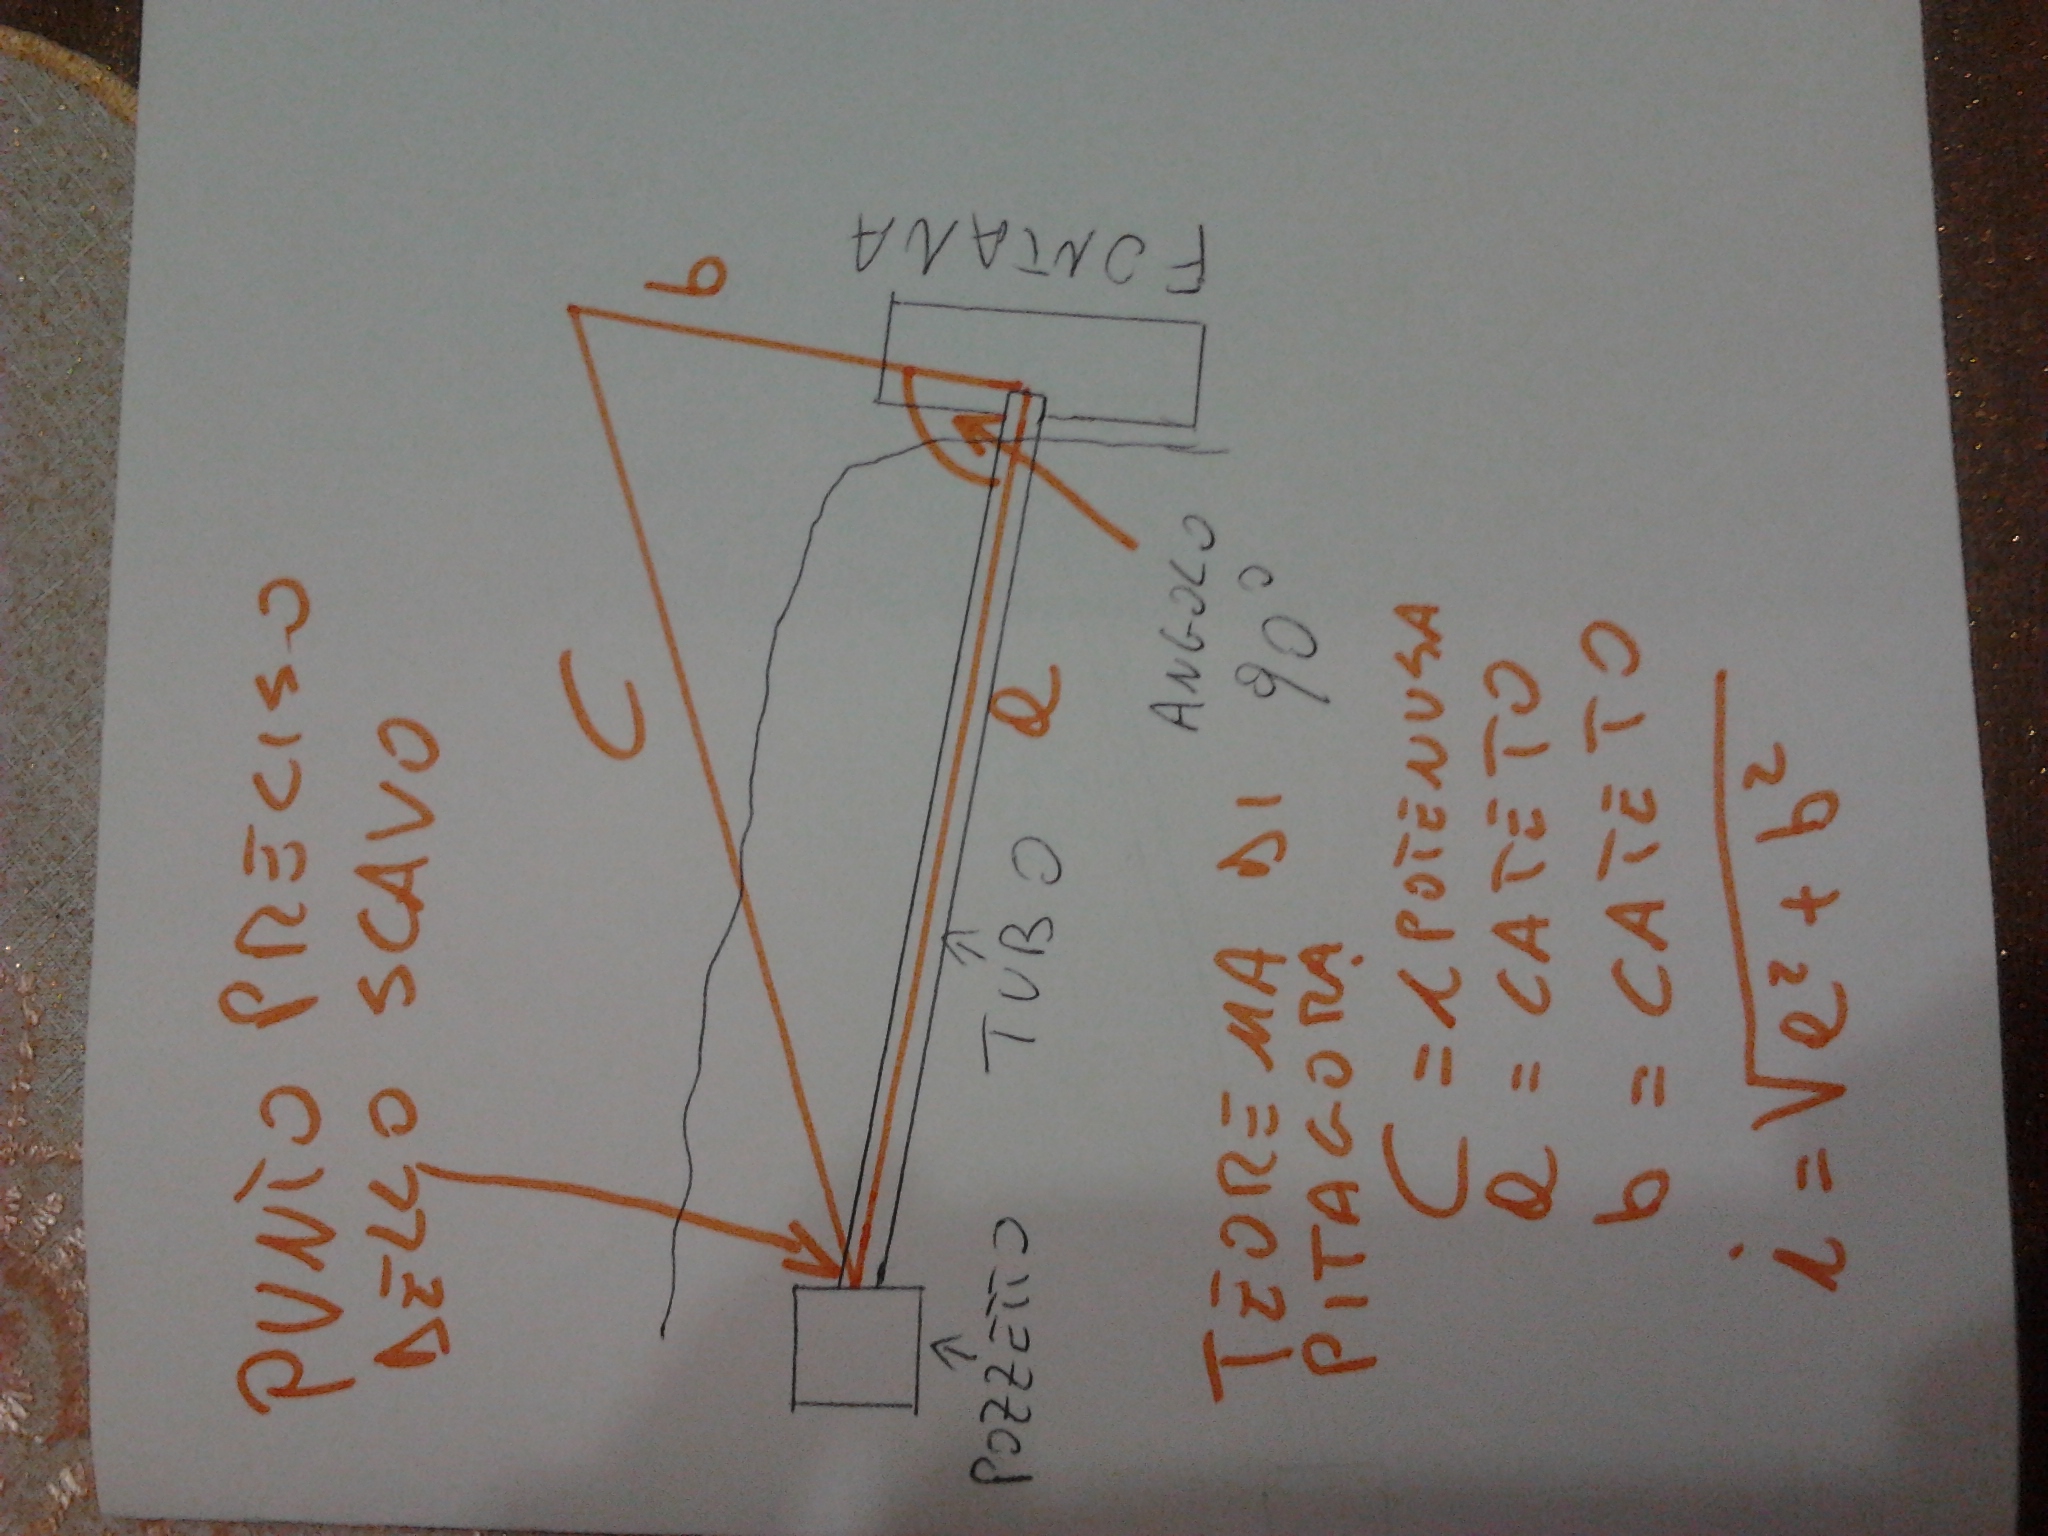 PUNTO PRECISO
DELLO SCAVO
C
b
FONTANA
a
TUBO
POZZETTO
ANGOLO
90°
TEOREMA DI
PITAGORA
C = iPOTENUSA
a = CATETO
b = CATETO
i = √a² + b²